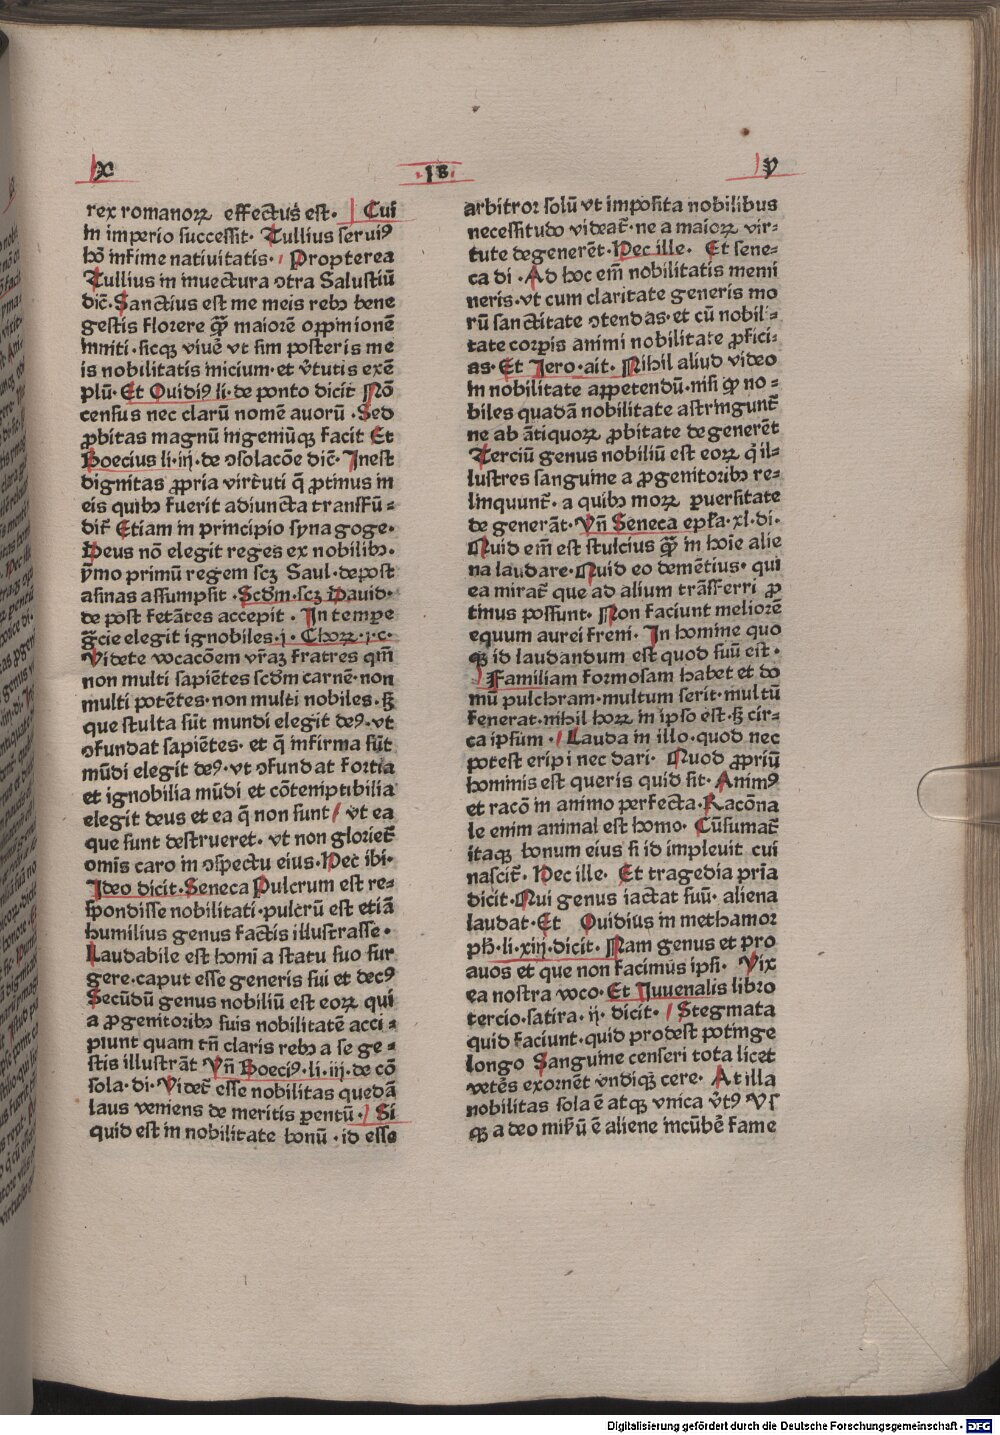 X
·18·
V
rex romanoꝝ effectus est· Cui
in imperio successit· Tullius seruiꝰ
hō infime natiuitatis· Propterea
Tullius in inuectura ↄtra Salustiū
dic̄· Sanctius est me meis rebꝫ bene
gestis florere qm̄ maiorē oppinionē
inniti· sicqꝫ viuē vt sim posteris me
is nobilitatis inicium· et v̄tutis exē
plū· Et Ouidiꝰ li· de ponto dicit Nō
census nec clarū nomē auorū· Sed
ꝓbitas magnū ingeniūqꝫ facit Et
Boecius li· iij· de ↄsolacōe dic̄· Inest
dignitas ꝓpria virtuti q̄ ꝓtinus in
eis quibꝫ fuerit adiuncta transfū-
dit̄ Etiam in principio synagoge·
Deus nō elegit reges ex nobilibꝫ·
ymo primū regem scꝫ Saul· de post
asinas assumpsit· Scdm̄· scꝫ Dauid·
de post fetātes accepit· In tempe
gr̄cie elegit ignobiles· j· Choꝝ· j· c·
Videte vocacōem vr̄aꝫ fratres qm̄
non multi sapiētes scdm̄ carnē· non
multi potētes· non multi nobiles· sꝫ
que stulta sūt mundi elegit deꝰ· vt
ↄfundat sapiētes· et q̄ infirma sūt
mūdi elegit deꝰ· vt ↄfundat fortia
et ignobilia mūdi et cōtemptibilia
elegit deus et ea q̄ non sunt / vt ea
que sunt destrueret· vt non gloriet̄
omis caro in ↄspectu eius· Hec ibi·
Ideo dicit· Seneca Pulcrum est re-
spondisse nobilitati· pulcrū est etiā
humilius genus factis illustrasse·
Laudabile est homi a statu suo sur
gere· caput esse generis sui et decꝰ
Secūdū genus nobiliū est eoꝝ qui
a ꝓgenitoribꝫ suis nobilitatē acci-
piunt quam tn̄ claris rebꝫ a se ge-
stis illustrāt Vn̄ Boeciꝰ· li· iij· de cō
sola· di· Videt̄ esse nobilitas quedā
laus veniens de meritis parentū· Si
quid est in nobilitate bonū· id esse
arbitror solū vt imposita nobilibus
necessitudo videat̄· ne a maioꝝ vir-
tute degenerēt· Hec ille· Et sene-
ca di· Ad hoc em̄ nobilitatis memi
neris· vt cum claritate generis mo
rū sanctitate ↄtendas· et cū nobili-
tate corpis animi nobilitate ꝓfici-
as· Et Jero· ait· Nihil aliud video
in nobilitate appetendū· nisi qꝫ no-
biles quadā nobilitate astringunt̄
ne ab ātiquoꝝ ꝓbitate degenerēt
Terciū genus nobiliū est eoꝝ q̄ il-
lustres sanguine a ꝓgenitoribꝫ re-
linquunt̄· a quibꝫ moꝝ ꝑuersitate
degenerāt· Vn̄ Seneca epl̄a· xl· di·
Quid em̄ est stulcius qm̄ in hoīe alie
na laudare· Quid eo demētius· qui
ea mirat̄ que ad alium trāsferri ꝓ
tinus possunt· Non faciunt meliorē
equum aurei freni· In homine quo
qꝫ id laudandum est quod suū est·
Familiam formosam habet et do
mū pulchram· multum serit· multū
fenerat· nihil hoꝝ in ipso est· sꝫ cir-
ca ipsum· Lauda in illo· quod nec
potest eripi nec dari· Quod ꝓpriū
hominis est queris quid sit· Animꝰ
et racō in animo perfecta· Racōna
le enim animal est homo· Cūsumat̄
itaqꝫ bonum eius si id impleuit cui
nascit̄· Hec ille· Et tragedia pria
dicit· Qui genus iactat suū· aliena
laudat· Et Ouidius in methamor
ph̄· li· xiij· dicit· Nam genus et pro
auos et que non facimus ipsi· Vix
ea nostra voco· Et Juuenalis libro
tercio· satira· ij· dicit· Stegmata
quid faciunt· quid prodest potinge
longo Sanguine censeri tota licet
vetēs exornēt vndiqꝫ cere· At illa
nobilitas sola ē atqꝫ vnica v̄tꝰ Vs
qꝫ adeo mis̄ū ē aliene incūbē fame
Digitalisierung gefördert durch die Deutsche Forschungsgemeinschaft - DFG